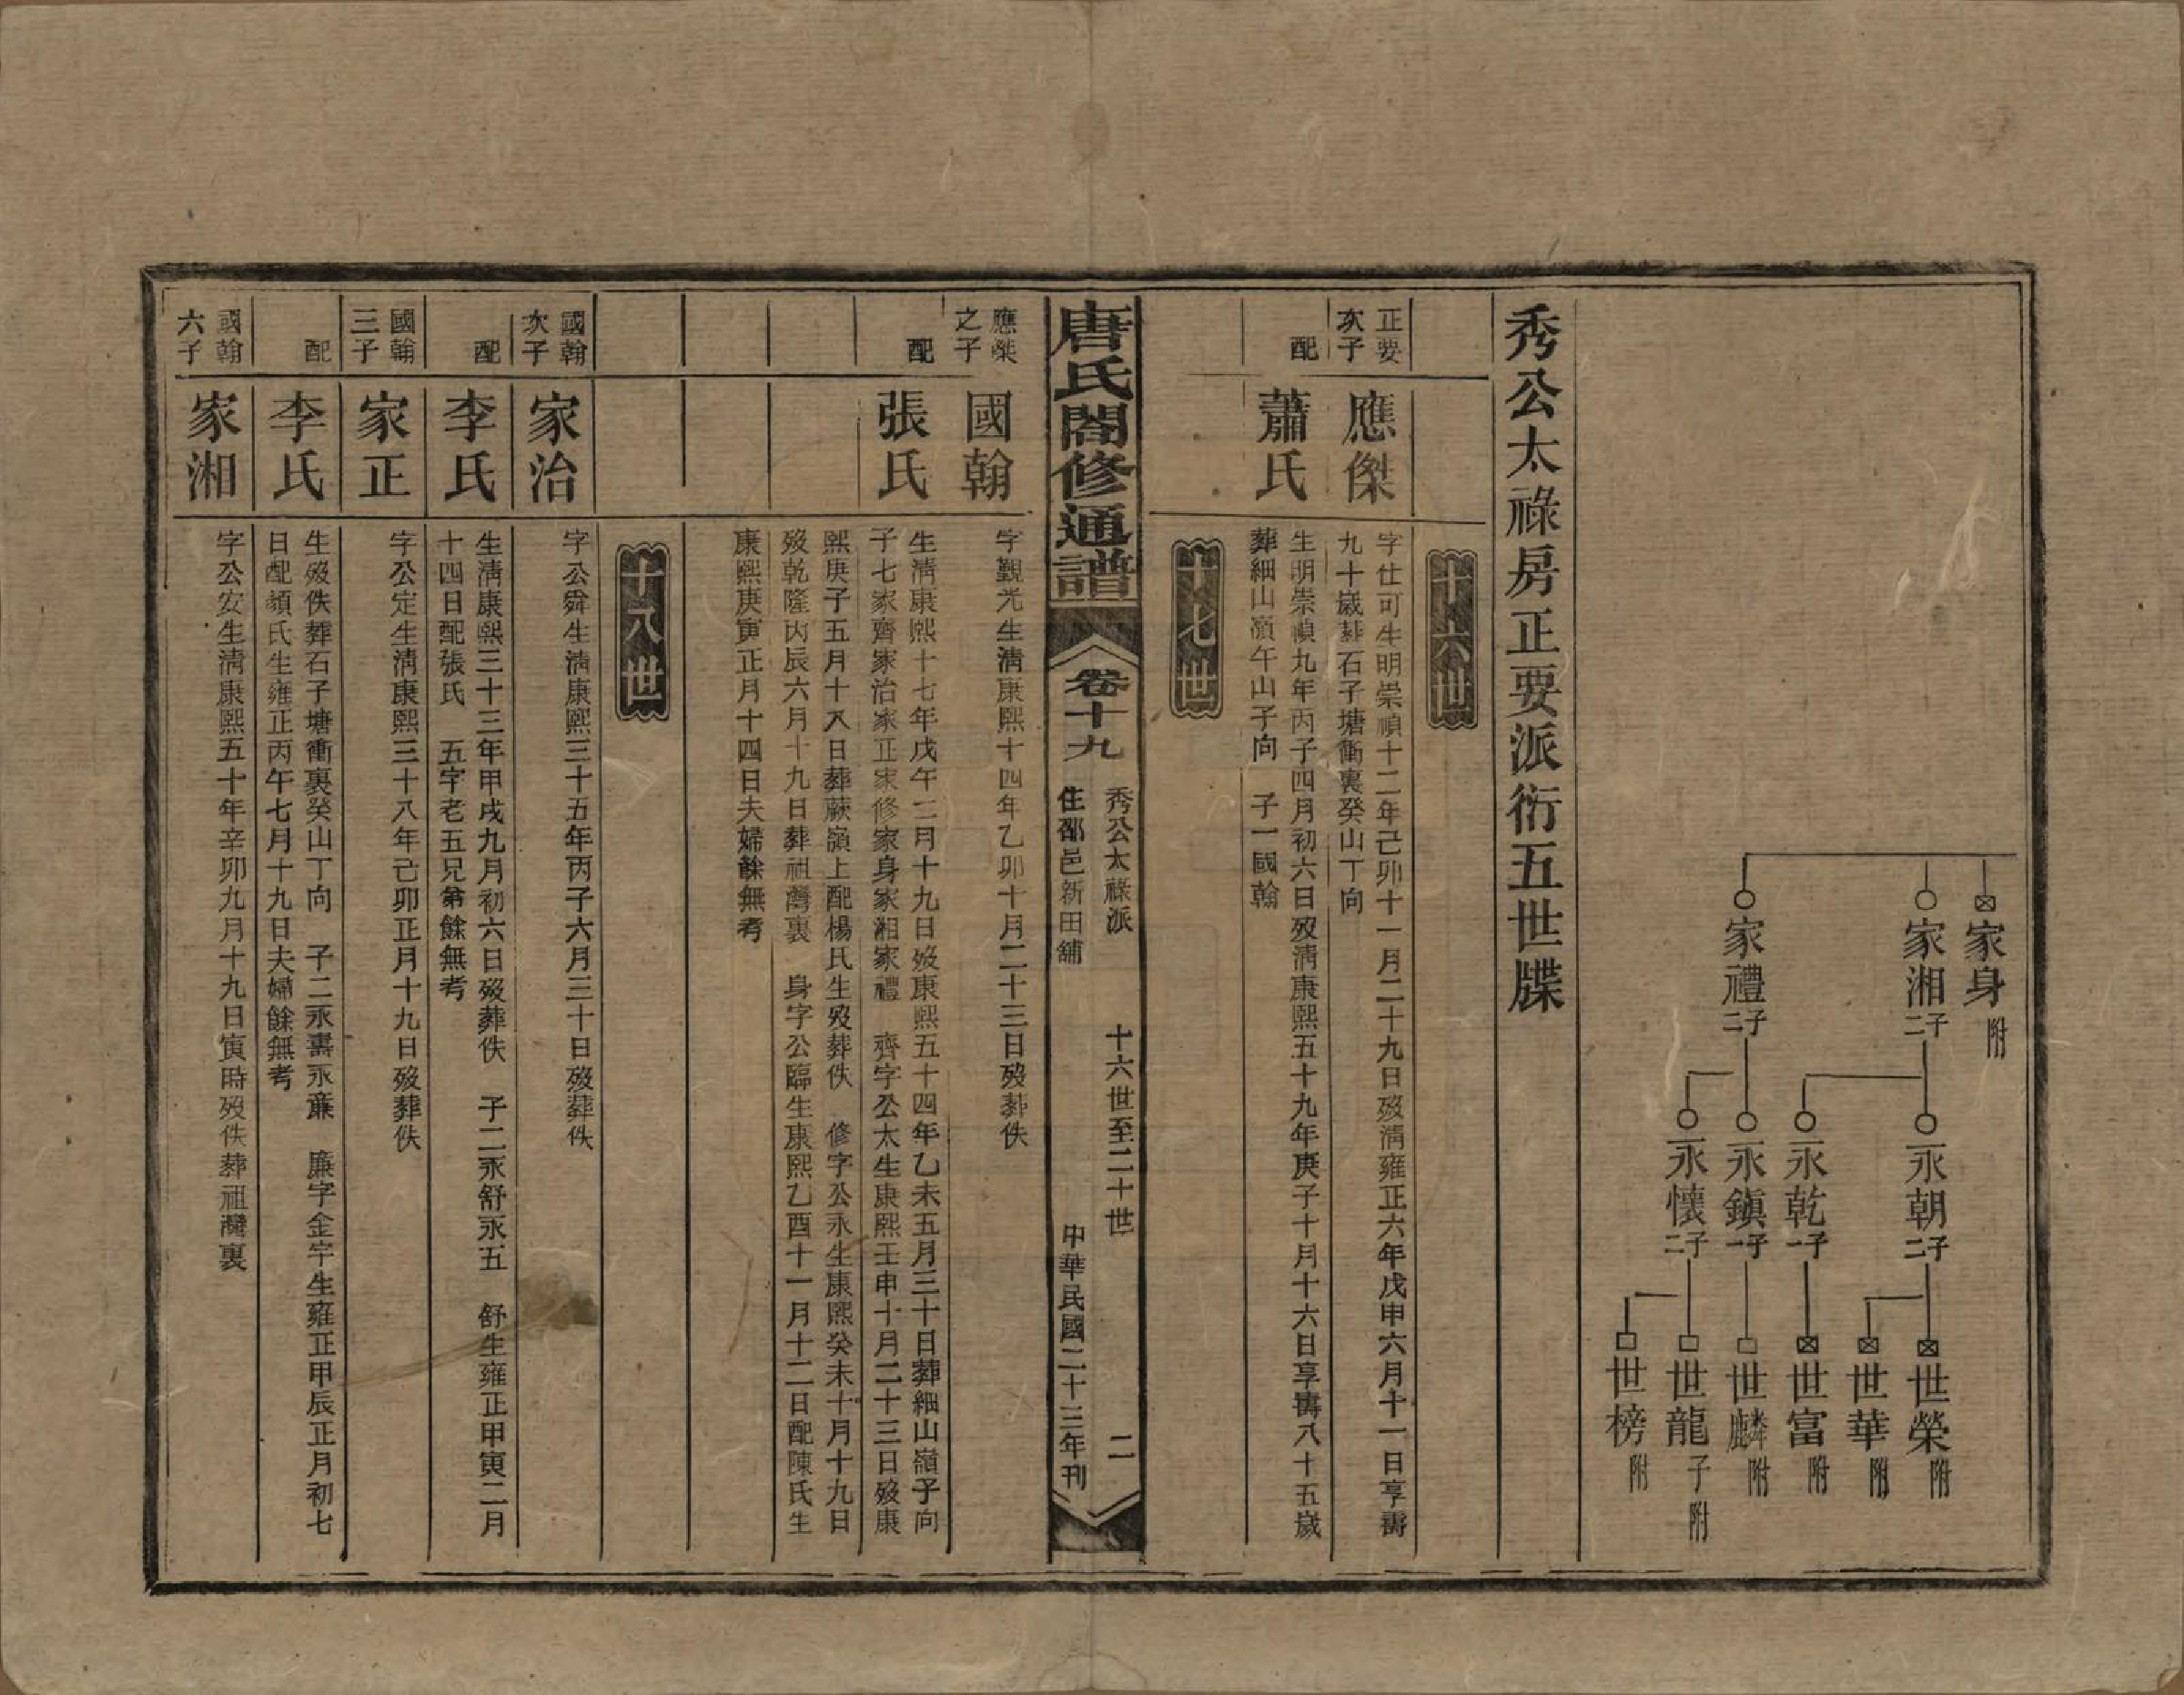 家身 附
家湘 二子
家禮 二子
永朝 二子
永乾 一子
永鎮 一子
永懷 二子
世榮 附
世華 附
世富 附
世麟 附
世龍 子附
世榜 附
秀公太祿房正要派衍五世牒
十六世
正要次子
應傑
字仕可生明崇禎十二年己卯十一月二十九日歿清雍正六年戊申六月十一日享壽
九十歲葬石子塘衝裏癸山丁向
配
蕭氏
生明崇禎九年丙子四月初六日歿清康熙五十九年庚子十月十六日享壽八十五歲
葬細山嶺午山子向 子一國翰
十七世
唐氏閤修通譜
卷十九
秀公太祿派 十六世至二十世 二
住邵邑新田舖 中華民國二十三年刊
應傑之子
國翰
字觀光生清康熙十四年乙卯十月二十三日歿葬佚
配
張氏
生清康熙十七年戊午二月十九日歿康熙五十四年乙未五月三十日葬細山嶺子向
子七家齊家治家正家修家身家湘家禮 齊字公太生康熙壬申十月二十三日歿康
熙庚子五月十八日葬蕨嶺上配楊氏生歿葬佚 修字公永生康熙癸未十月十九日
歿乾隆丙辰六月十九日葬祖灣裏 身字公臨生康熙乙酉十一月十二日配陳氏生
康熙庚寅正月十四日夫婦餘無考
十八世
國翰次子
家治
字公舜生清康熙三十五年丙子六月三十日歿葬佚
配
李氏
生清康熙三十三年甲戌九月初六日歿葬佚 子二永舒永五 舒生雍正甲寅二月
十四日配張氏 五字老五兄弟餘無考
國翰三子
家正
字公定生清康熙三十八年己卯正月十九日歿葬佚
配
李氏
生歿佚葬石子塘衝裏癸山丁向 子二永壽永廉 廉字金宇生雍正甲辰正月初七
日配顏氏生雍正丙午七月十九日夫婦餘無考
國翰六子
家湘
字公安生清康熙五十年辛卯九月十九日寅時歿佚葬祖灣裏